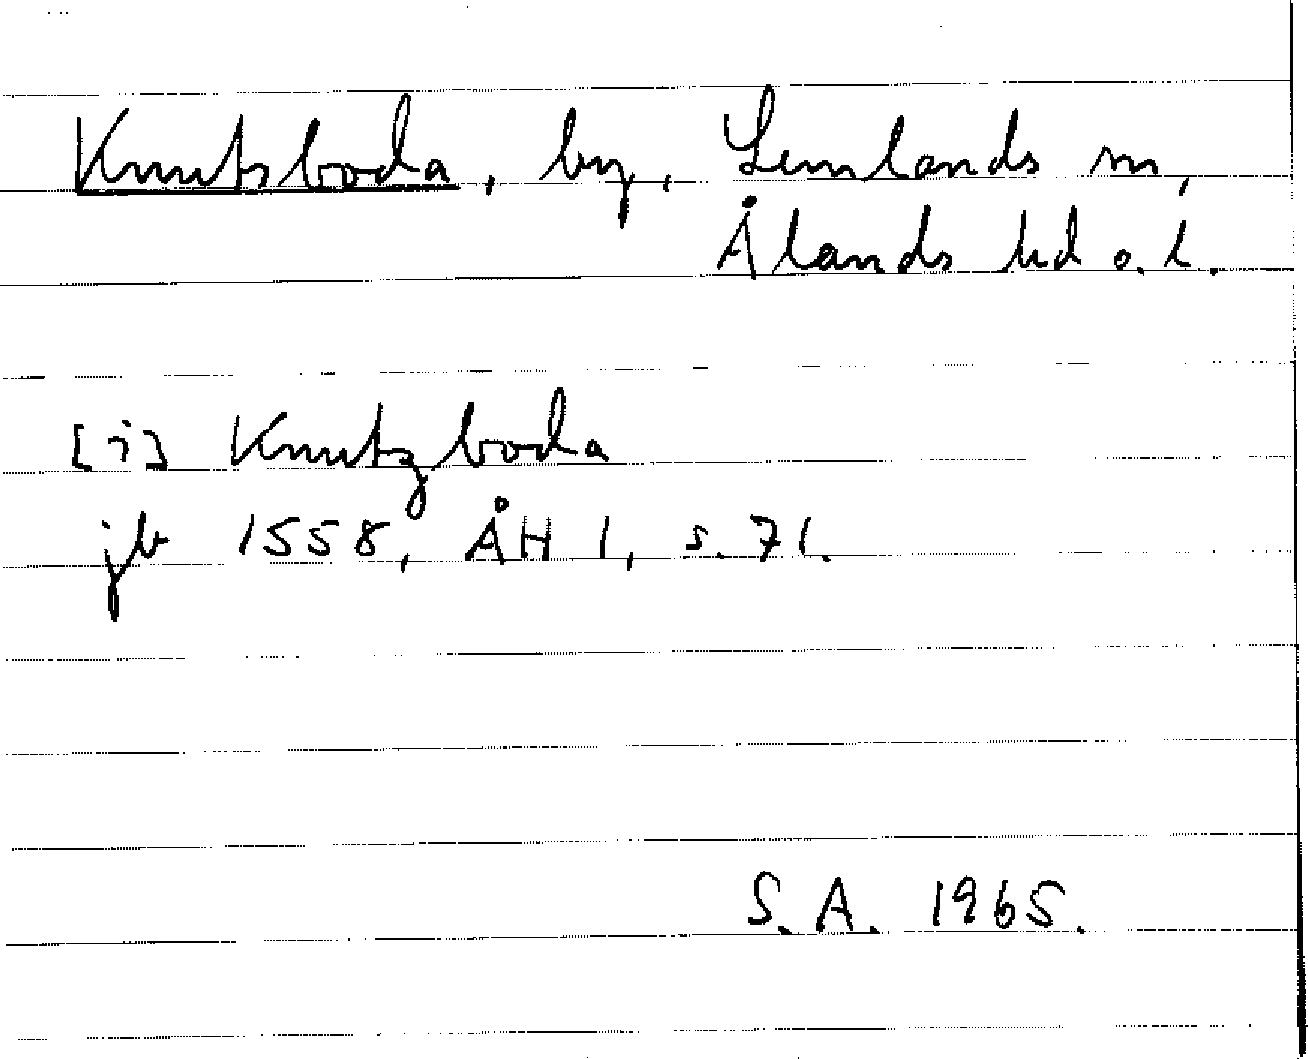 Knutsboda, by, Lemlands sn,
Ålands hd o. l.
[i] Knutzboda
jb 1558, ÅH 1, s. 71.
S.A. 1965.